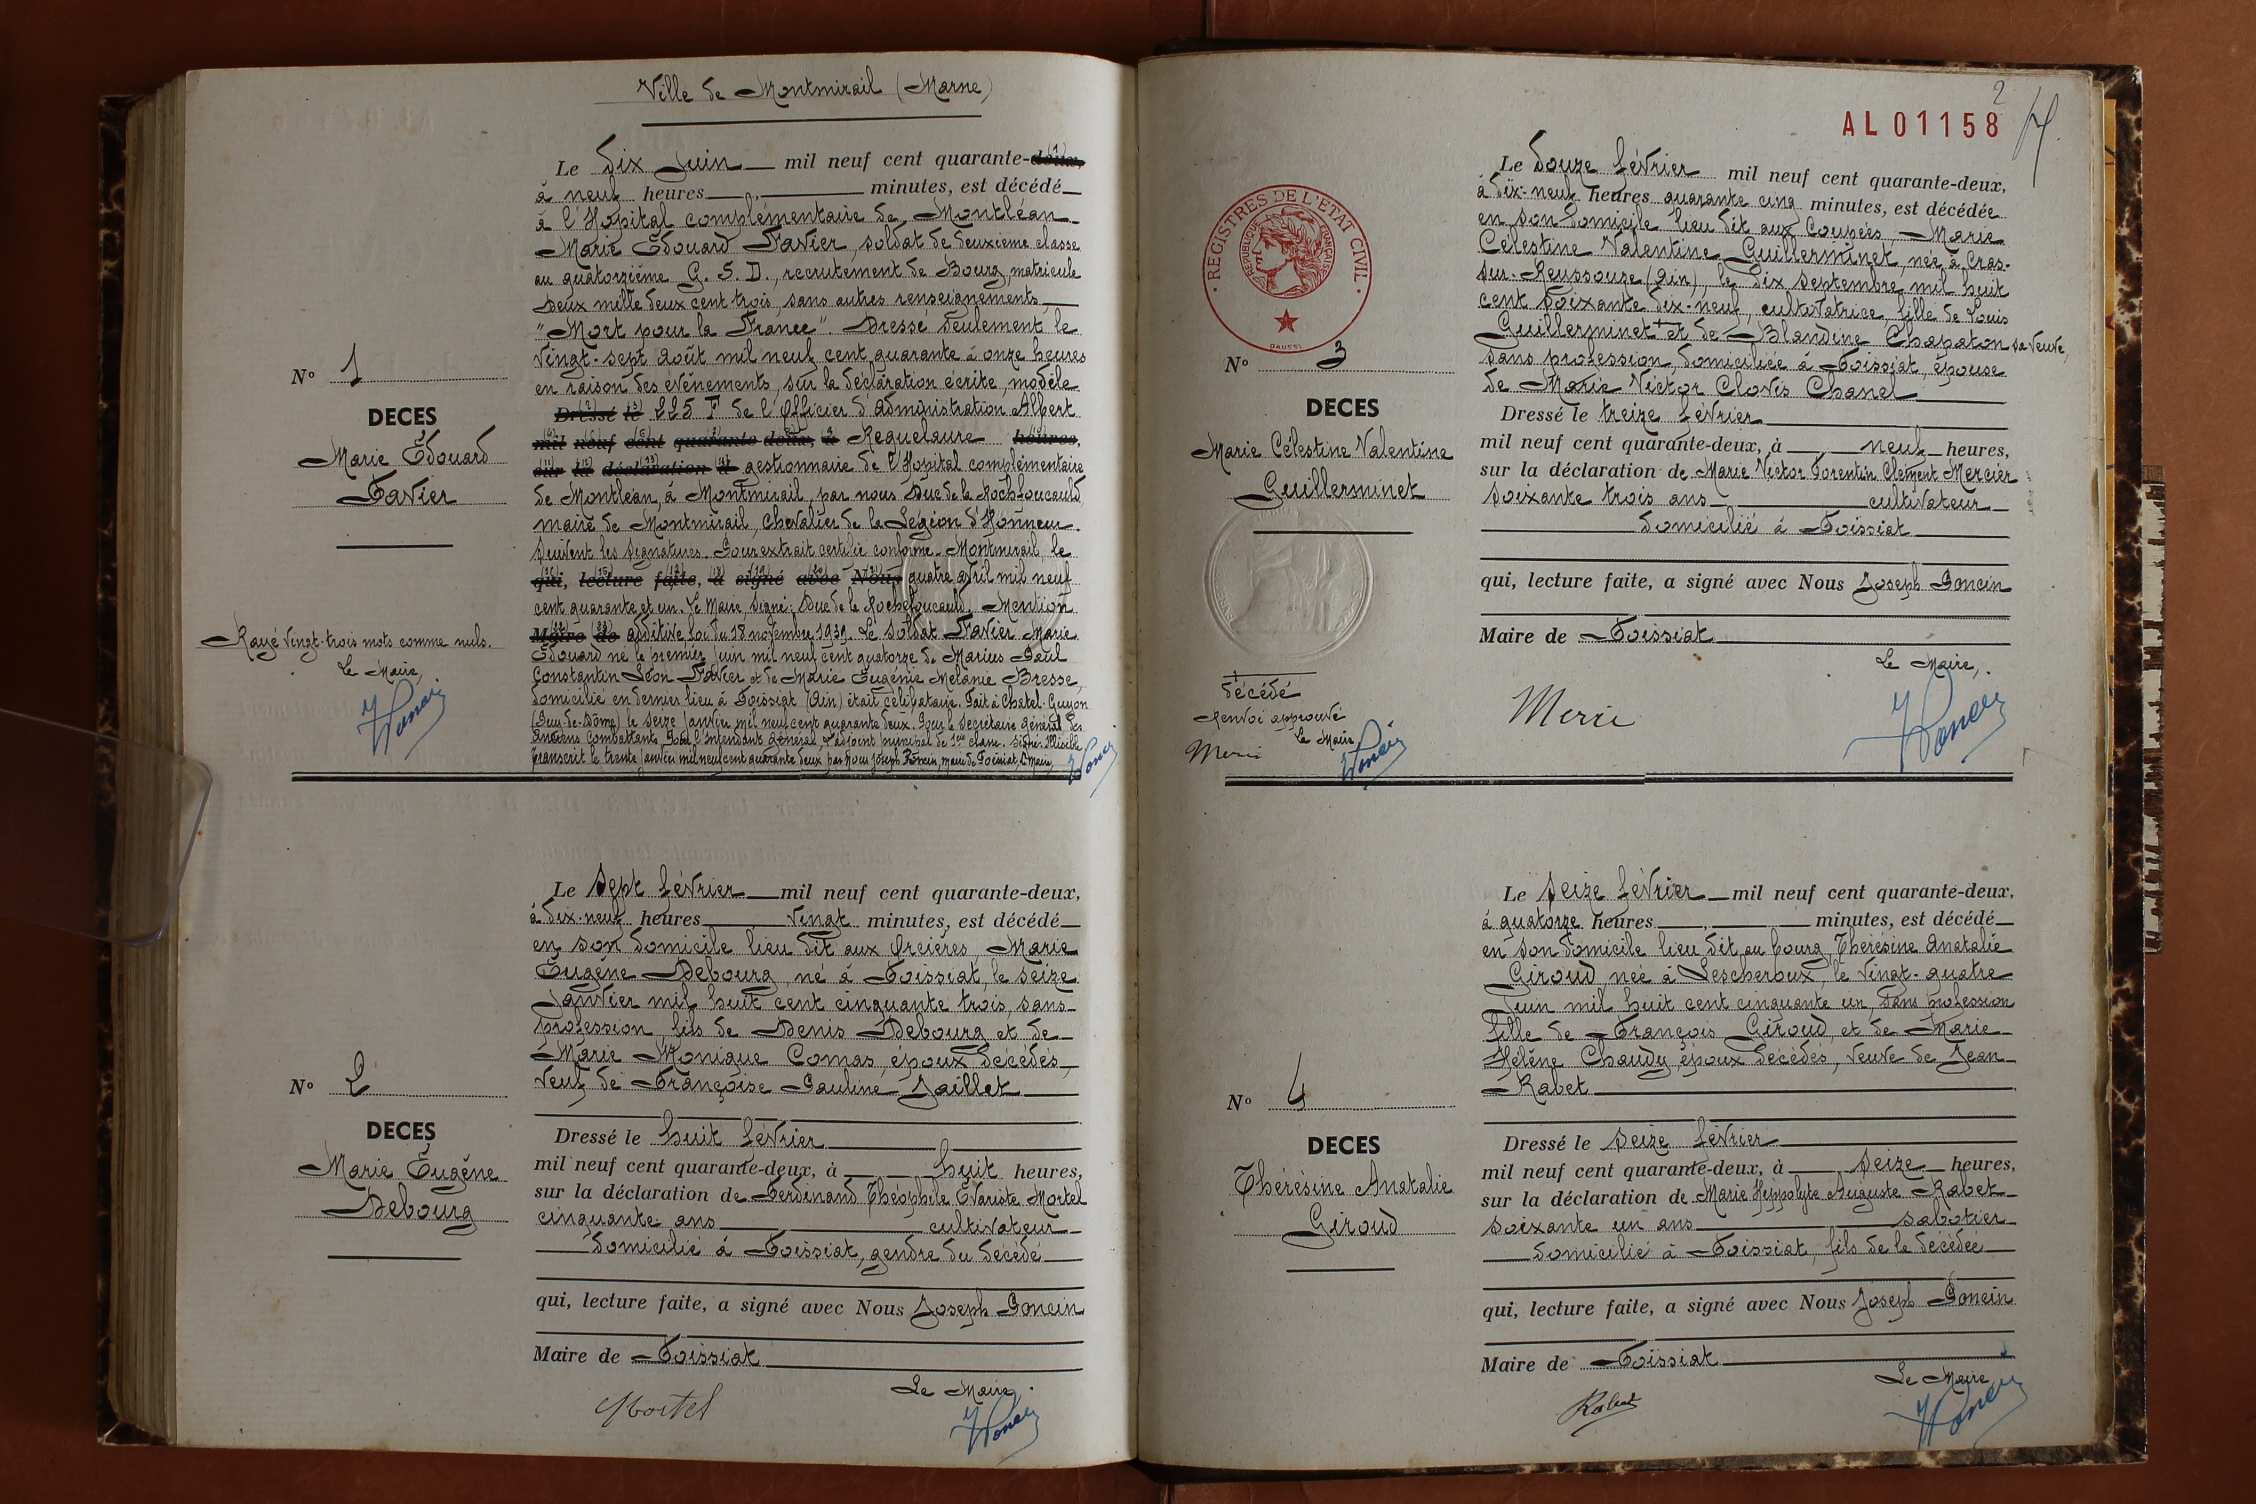 Ville de Montmirail (Marne)
Le dix juin mil neuf cent quarante-deux,
à neuf heures minutes, est décédé
à l'Hopital complémentaire de Montléan
Marie Edouard Favier, soldat de deuxième classe
au quatorzième G. S. D., recrutement de Bourg, matricule
deux mille deux cent trois, sans autres renseignements
"Mort pour la France". Dressé seulement le
vingt-sept août mil neuf cent quarante à onze heures
en raison des événements, sur la déclaration écrite, modèle
Dressé le 225 F de l'Officier d'administration Albert
mil neuf cent quarante deux, à Requelaure heures,
sur la déclaration d gestionnaire de l'Hopital complémentaire
de Montléan, à Montmirail, par nous Duc de la Rochfoucauld
maire de Montmirail, Chevalier de la Légion d'Honneur.
Suivent les signatures. Pour extrait certifié conforme. Montmirail le
qui, lecture faite, a signé avec Nous quatre avril mil neuf
cent quarante et un. Le Maire, signé: Duc de la Rochefoucauld. Mention
Maire de additive loi du 18 novembre 1939. Le soldat Favier Marie
Edouard né le premier juin mil neuf cent quatorze de Marius Paul
Constantin Léon Favier et de Marie Eugénie Mélanie Bresse,
domicilié en dernier lieu à Foissiat (Ain) était célibataire. Fait à Chatel-Guyon
(Puy-de-Dôme) le seize janvier mil neuf cent quarante deux. Pour le Secrétaire Général des
Anciens Combattants Pour l'Intendant Général, l'adjoint principal de 1ère classe. Signé: Illisible
Transcrit le trente janvier mil neuf cent quarante deux par nous Joseph Poncin, maire de Foissiat, Le Maire,
Poncin
N° 1
DECES
Marie Edouard
Favier
Rayé vingt-trois mots comme nuls.
Le Maire,
Poncin
Le sept février mil neuf cent quarante-deux,
à dix-neuf heures vingt minutes, est décédé
en son domicile lieu dit aux Orcières, Marie
Eugène Debourg, né à Foissiat, le seize
janvier mil huit cent cinquante trois, sans
profession, fils de Denis Debourg et de
Marie Monique Comas, époux décédés,
veuf de Françoise Pauline Jaillet
N° 2
DECES
Marie Eugène
Debourg
Dressé le huit février
mil neuf cent quarante-deux, à huit heures,
sur la déclaration de Ferdinand Théophile Evariste Mortel
cinquante ans cultivateur
domicilié à Foissiat, gendre du décédé
qui, lecture faite, a signé avec Nous Joseph Poncin
Maire de Foissiat
Le Maire,
Mortel
Poncin
2
AL 01158
REGISTRES DE L'ÉTAT CIVIL
RÉPUBLIQUE FRANÇAISE
DAUSSI
Le douze février mil neuf cent quarante-deux,
à dix-neuf heures quarante cinq minutes, est décédée
en son domicile lieu dit aux Coupées, Marie
Célestine Valentine Guillerminet, née à Cras-
sur-Reyssouze (Ain), le dix septembre mil huit
cent soixante dix-neuf, cultivatrice, fille de Louis
Guillerminet + et de Blandine Chapaton sa veuve,
sans profession, domiciliée à Foissiat, épouse
de Marie Victor Clovis Chanel
N° 3
DECES
Marie Célestine Valentine
Guillerminet
Dressé le treize février
mil neuf cent quarante-deux, à neuf heures,
sur la déclaration de Marie Victor Florentin Clément Mercier
soixante trois ans cultivateur
domicilié à Foissiat
qui, lecture faite, a signé avec Nous Joseph Poncin
Maire de Foissiat
Le Maire,
+
décédé
Renvoi approuvé
Le Maire
Poncin
Poncin
Le seize février mil neuf cent quarante-deux,
à quatorze heures minutes, est décédé
en son domicile lieu dit au bourg, Thérésine Anatalie
Giroud, née à Lescheroux, le vingt-quatre
juin mil huit cent cinquante un, sans profession
fille de François Giroud, et de Marie
Hélène Chaudy, époux décédés, veuve de Jean
Rabet
N° 4
DECES
Thérésine Anatalie
Giroud
Dressé le seize février
mil neuf cent quarante-deux, à seize heures,
sur la déclaration de Marie Hippolyte Auguste Rabet
soixante un ans sabotier
domicilié à Foissiat, fils de la décédée
qui, lecture faite, a signé avec Nous Joseph Poncin
Maire de Foissiat
Le Maire
Rabet
Poncin